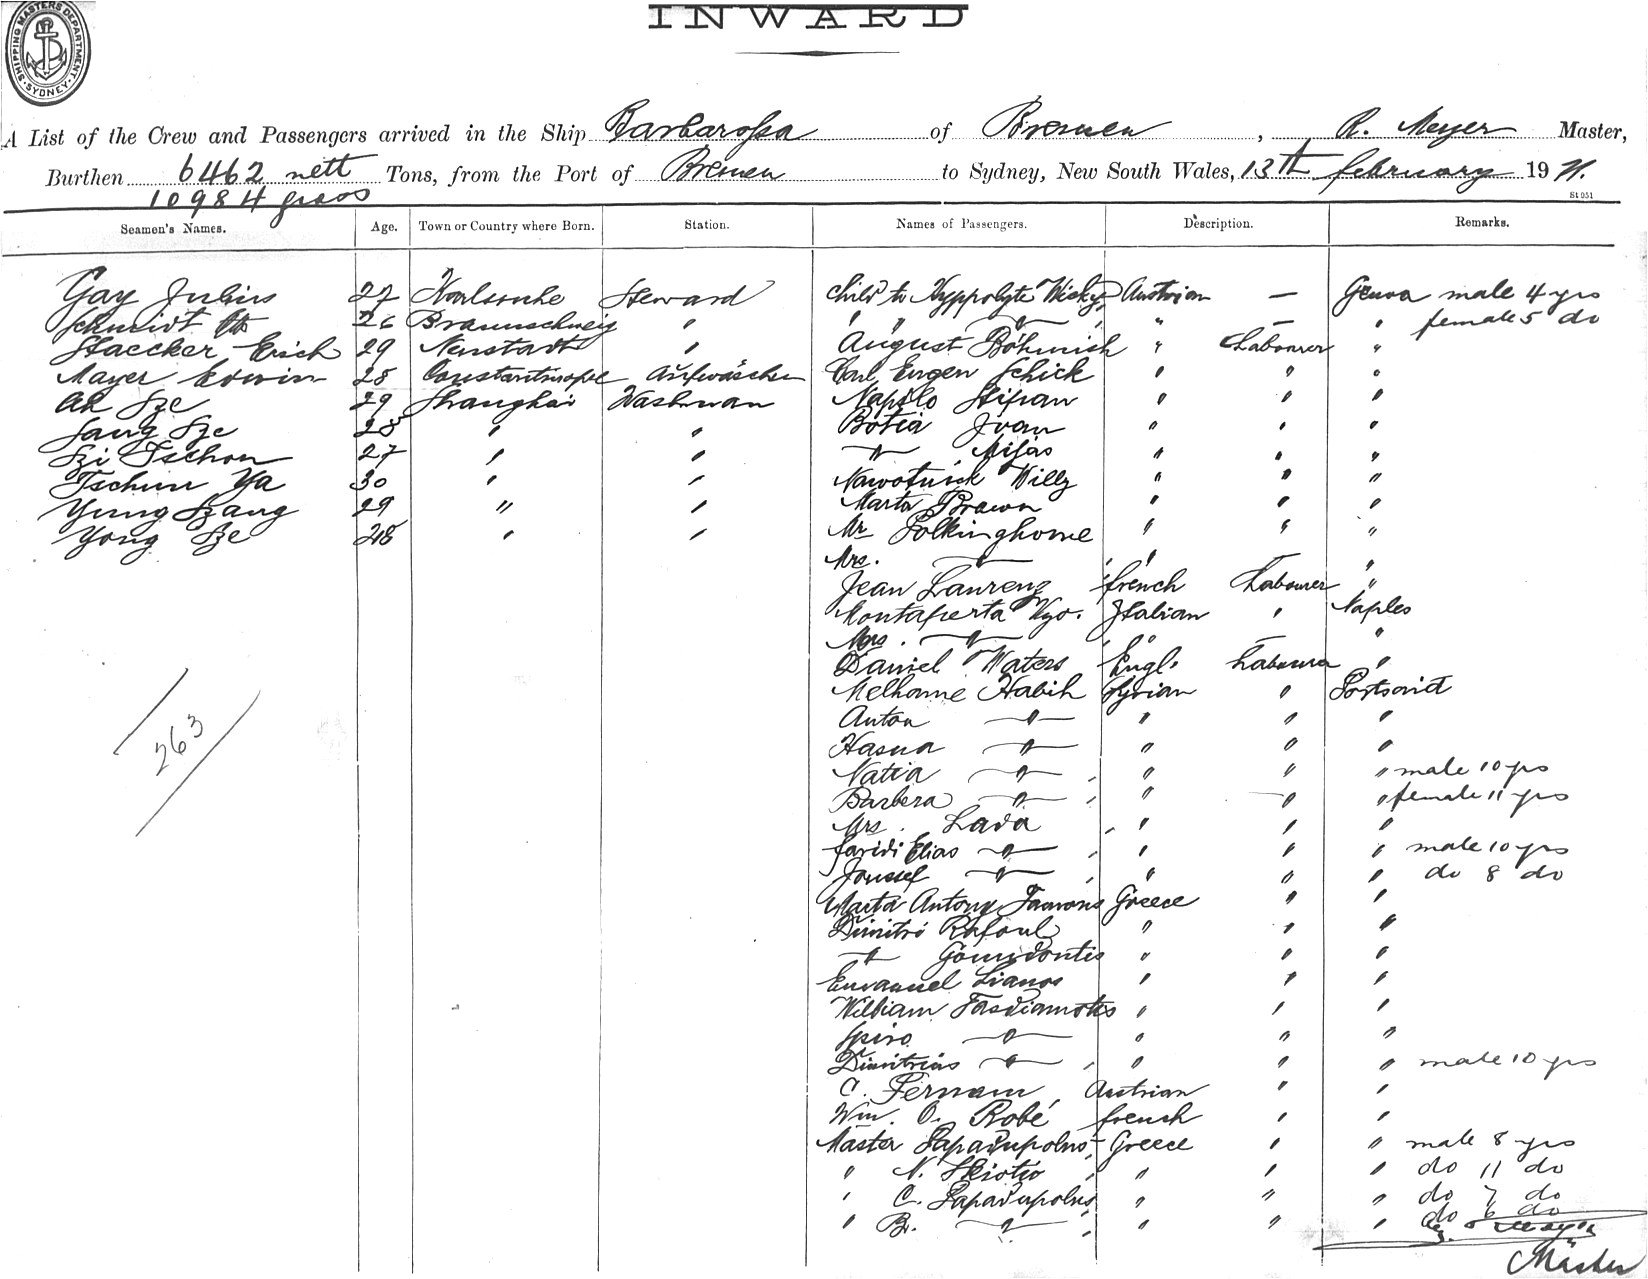 SHIPPING MASTERS DEPARTMENT. SYDNEY.
INWARD
A List of the Crew and Passengers arrived in the Ship Barbarossa of Bremen, R. Meyer Master,
Burthen 6462 nett Tons, from the Port of Bremen to Sydney, New South Wales, 13th February 1911.
10984 gross
St 951
Seamen's Names. Age. Town or Country where Born. Station. Names of Passengers. Description. Remarks.
Gay Julius 27 Karlsruhe Steward Child to Hyppolyte Nicky Austrian — Genua male 4 yrs
Schmidt Otto 26 Braunschweig " " " " " — " female 5 do
Staecker Erich 29 Neustadt " August Böhmish " Labourer "
Mayer Edwin 28 Constantinopel Aufwäscher Carl Eugen Schick " " "
Ah Sze 29 Shanghai Washman Napilo Stipan " " "
Sang Sze 28 " " Botia Ivan " " "
Szi Tschon 27 " " " Mijas " " "
Tschun Ya 30 " " Nawotnick Willy " " "
Yung Szang 29 " " Marta Brawn " " "
Yong Sze 28 " " Mr Polkinghorne " " "
Mrs. " " — "
Jean Laurenz French Labourer "
Montaperta Italian " Naples
Mrs. " " — "
Daniel Waters Engl. Labourer "
Melhome Habih Syrian " Portsaid
Anton " " " "
Hasna " " " "
Natia " " " " male 10 yrs
Barbera " " " " female 11 yrs
Mrs. Lada " " "
Faridi Elias " " " " male 10 yrs
Joussef " " " " do 8 do
Marta Antony Greece " "
Dimitri Rafoul " " "
" " " "
Emanuel Lianos " " "
William Tasdiamotis " " "
Spiro " " " "
Dimitrios " " " " male 10 yrs
C. Fernam Austrian " "
Wm. O. Robé French " "
Master Papadupolus Greece " " male 8 yrs
" N. Skiotis " " " do 11 do
" C. Papadupolus " " " do 7 do
" B. " " " " do 6 do
263
Master